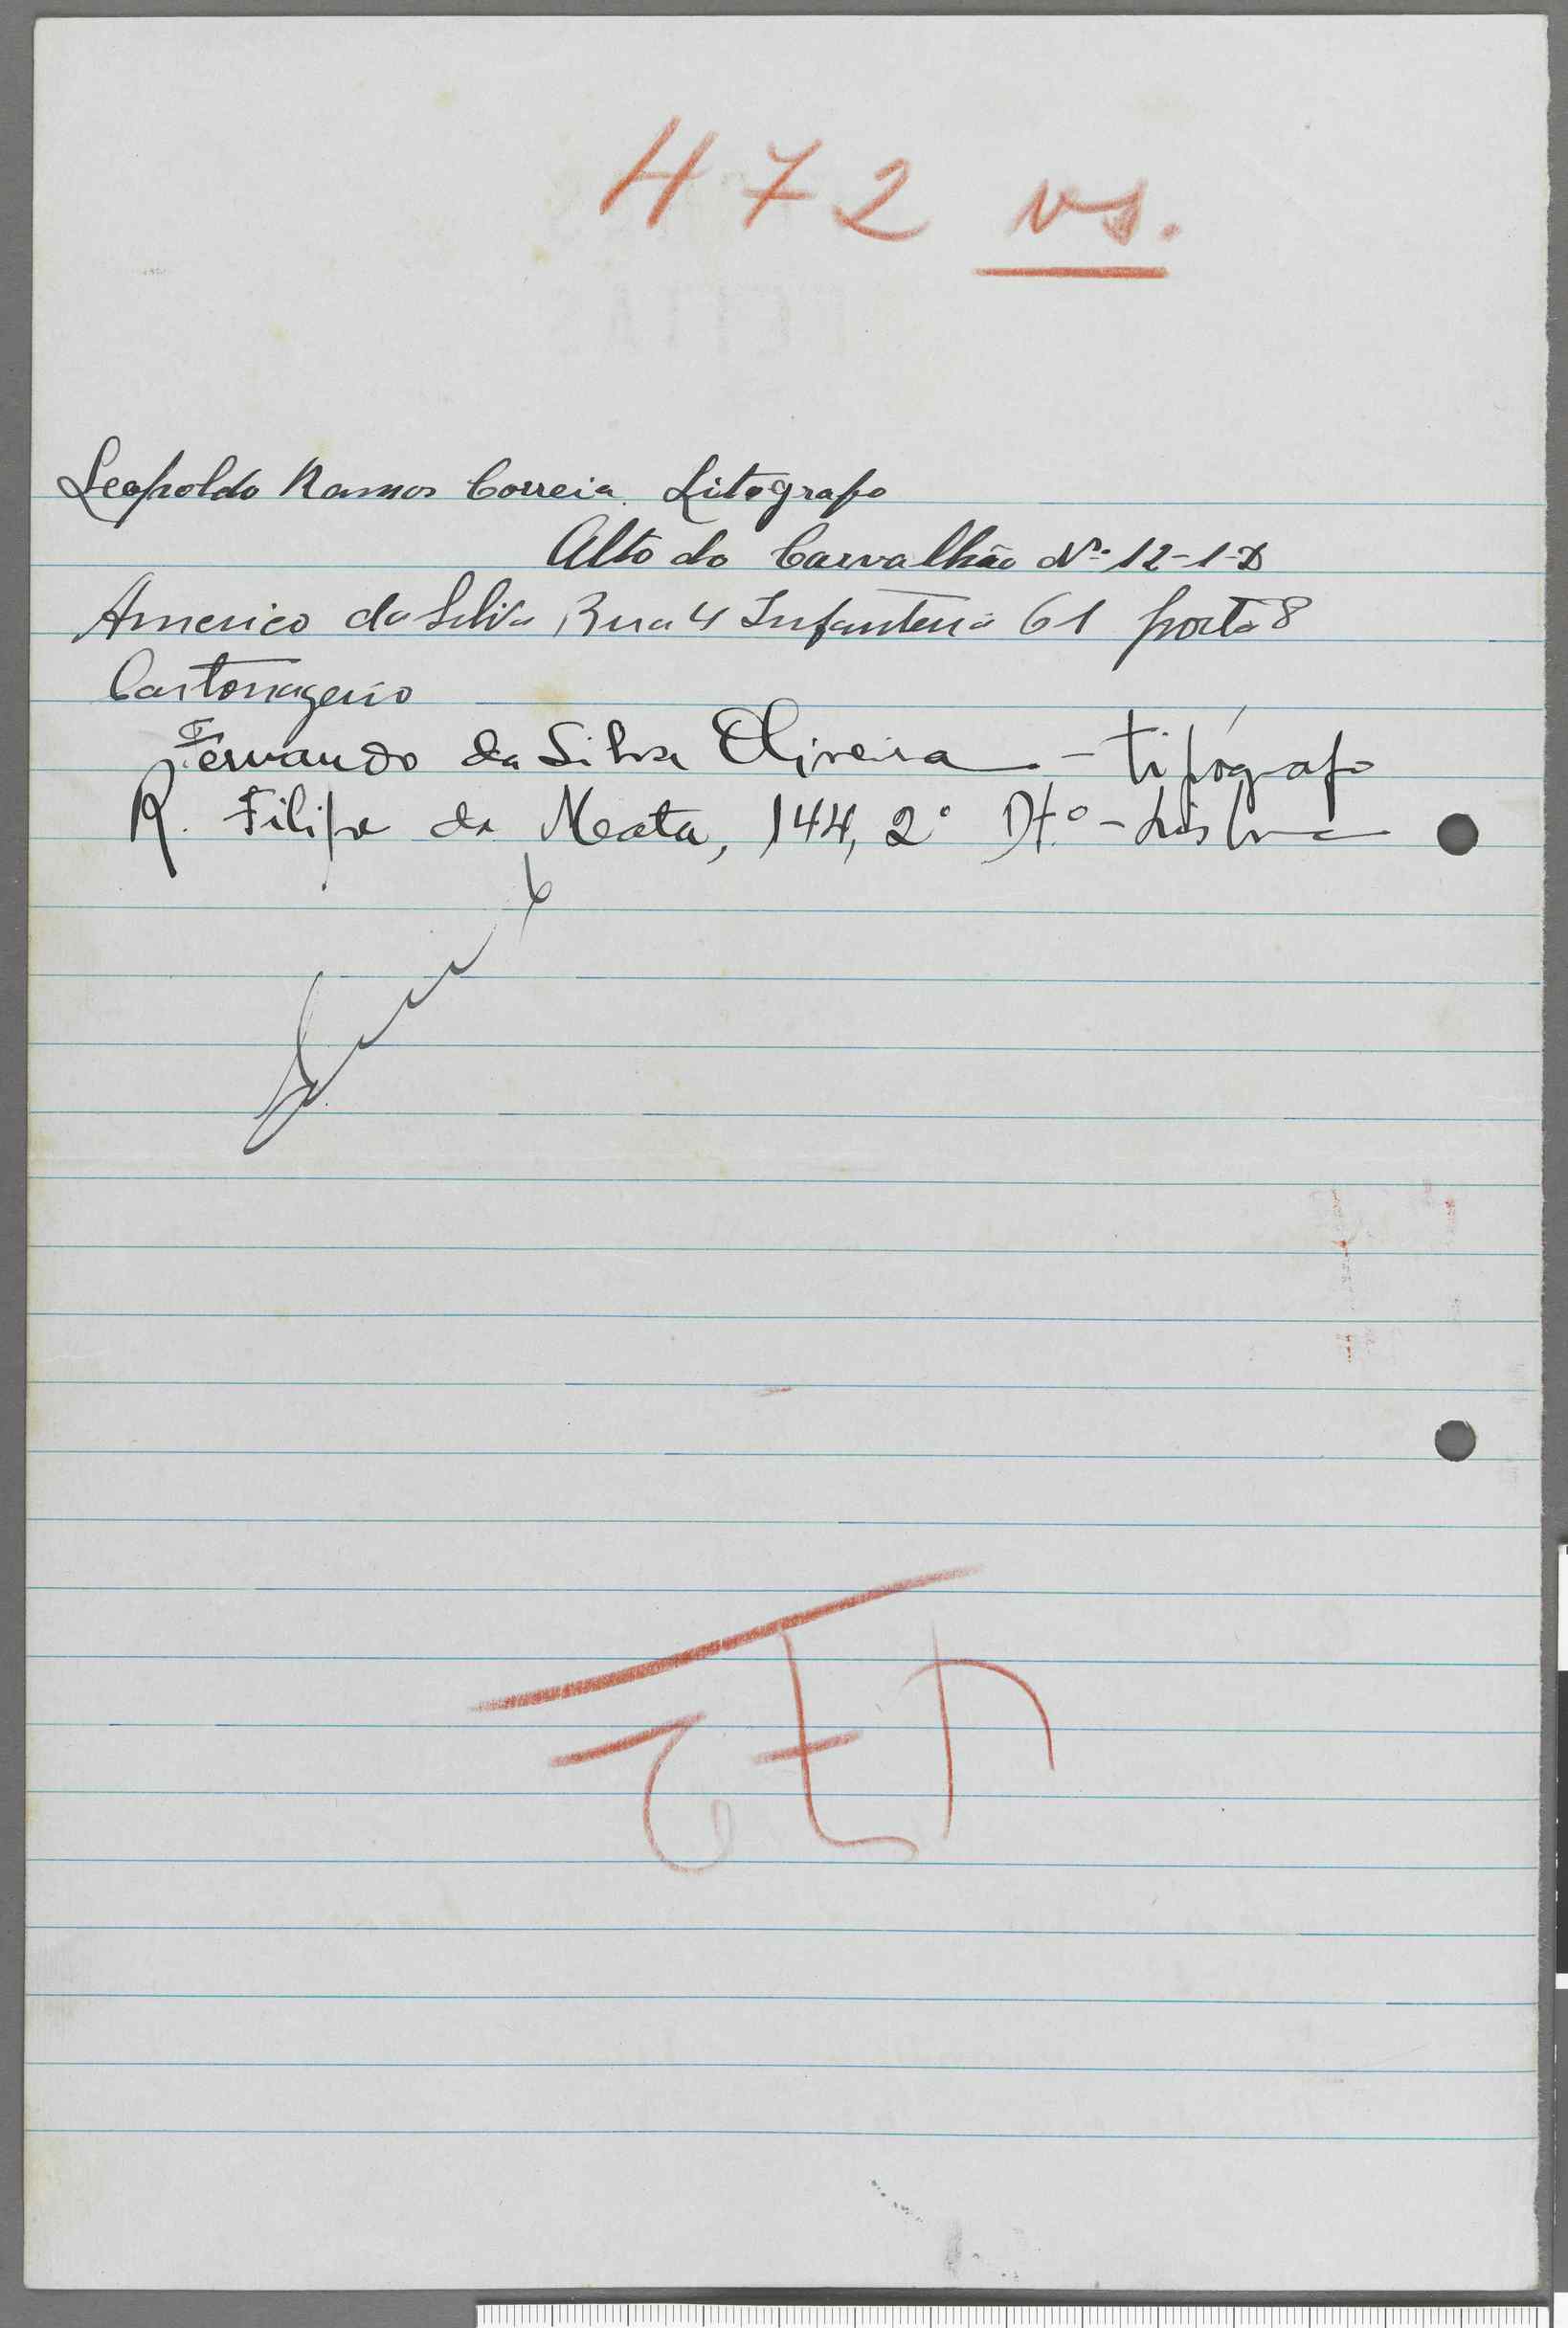 472 vs.
Leopoldo Ramos Correia. Litografo
Alto do Carvalhão Nº 12-1-D
Americo da Silva Rua 4 Infanteria 61 porta 8
Cartonageiro
Fernando da Silva Oliveira - tipógrafo
R. Filipe da Mata, 144, 2º Dt.º - Lisboa
472